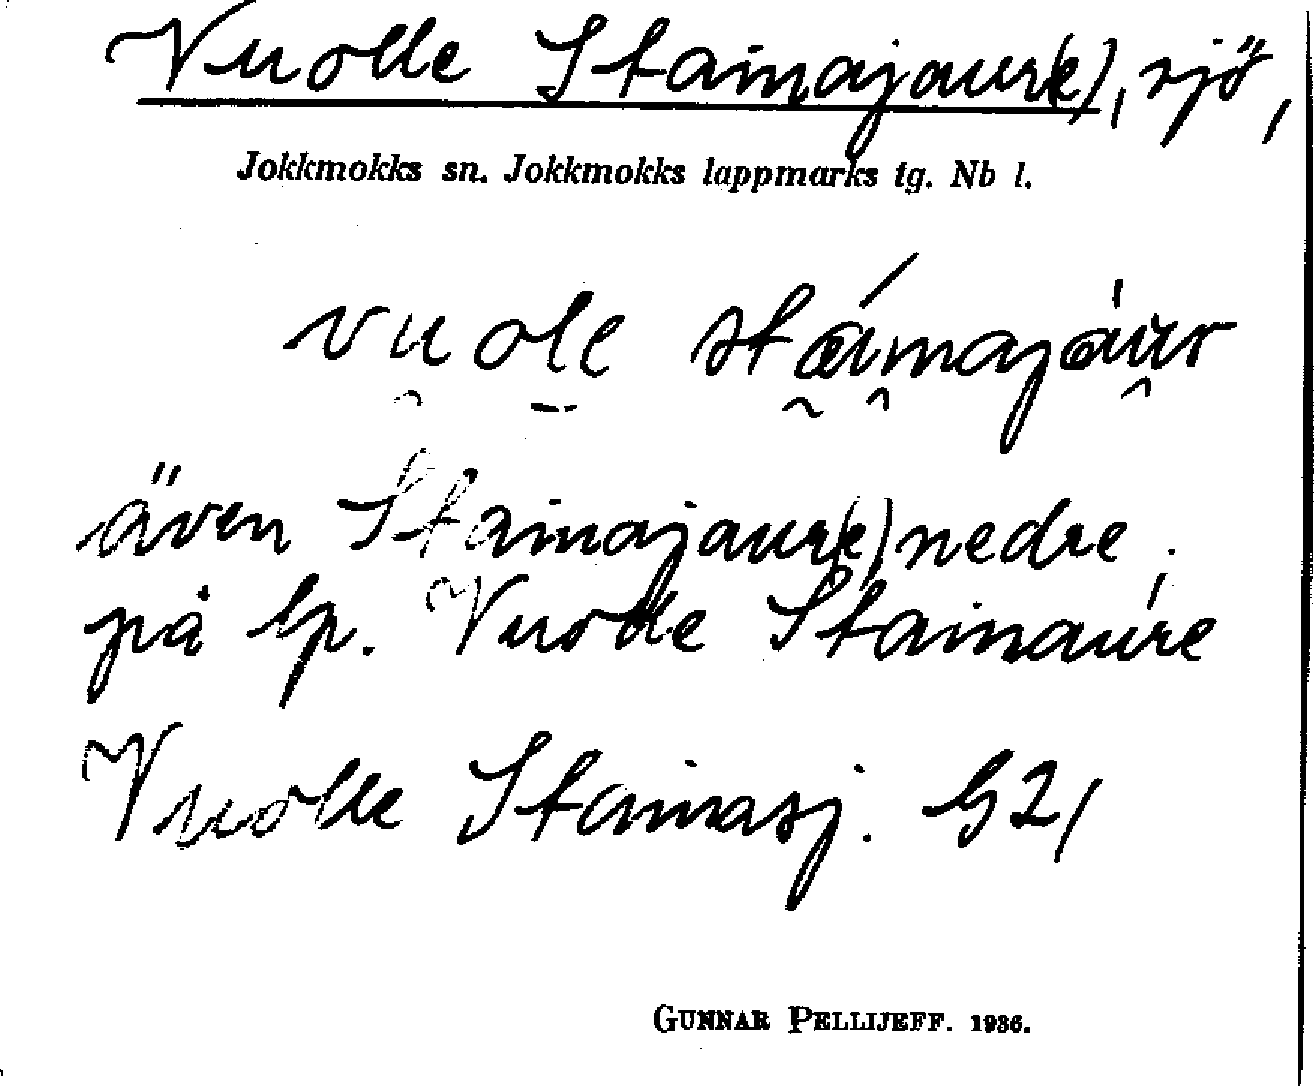 Vuolle Stainajaur(e), sjö,
Jokkmokks sn. Jokkmokks lappmarks tg. Nb l.
vuole stáinajáur
även Stainajaur(e) nedre,
på lp. Vuolle Stainaure
Vuolle Stainasj.
GUNNAR PELLIJEFF. 1936.